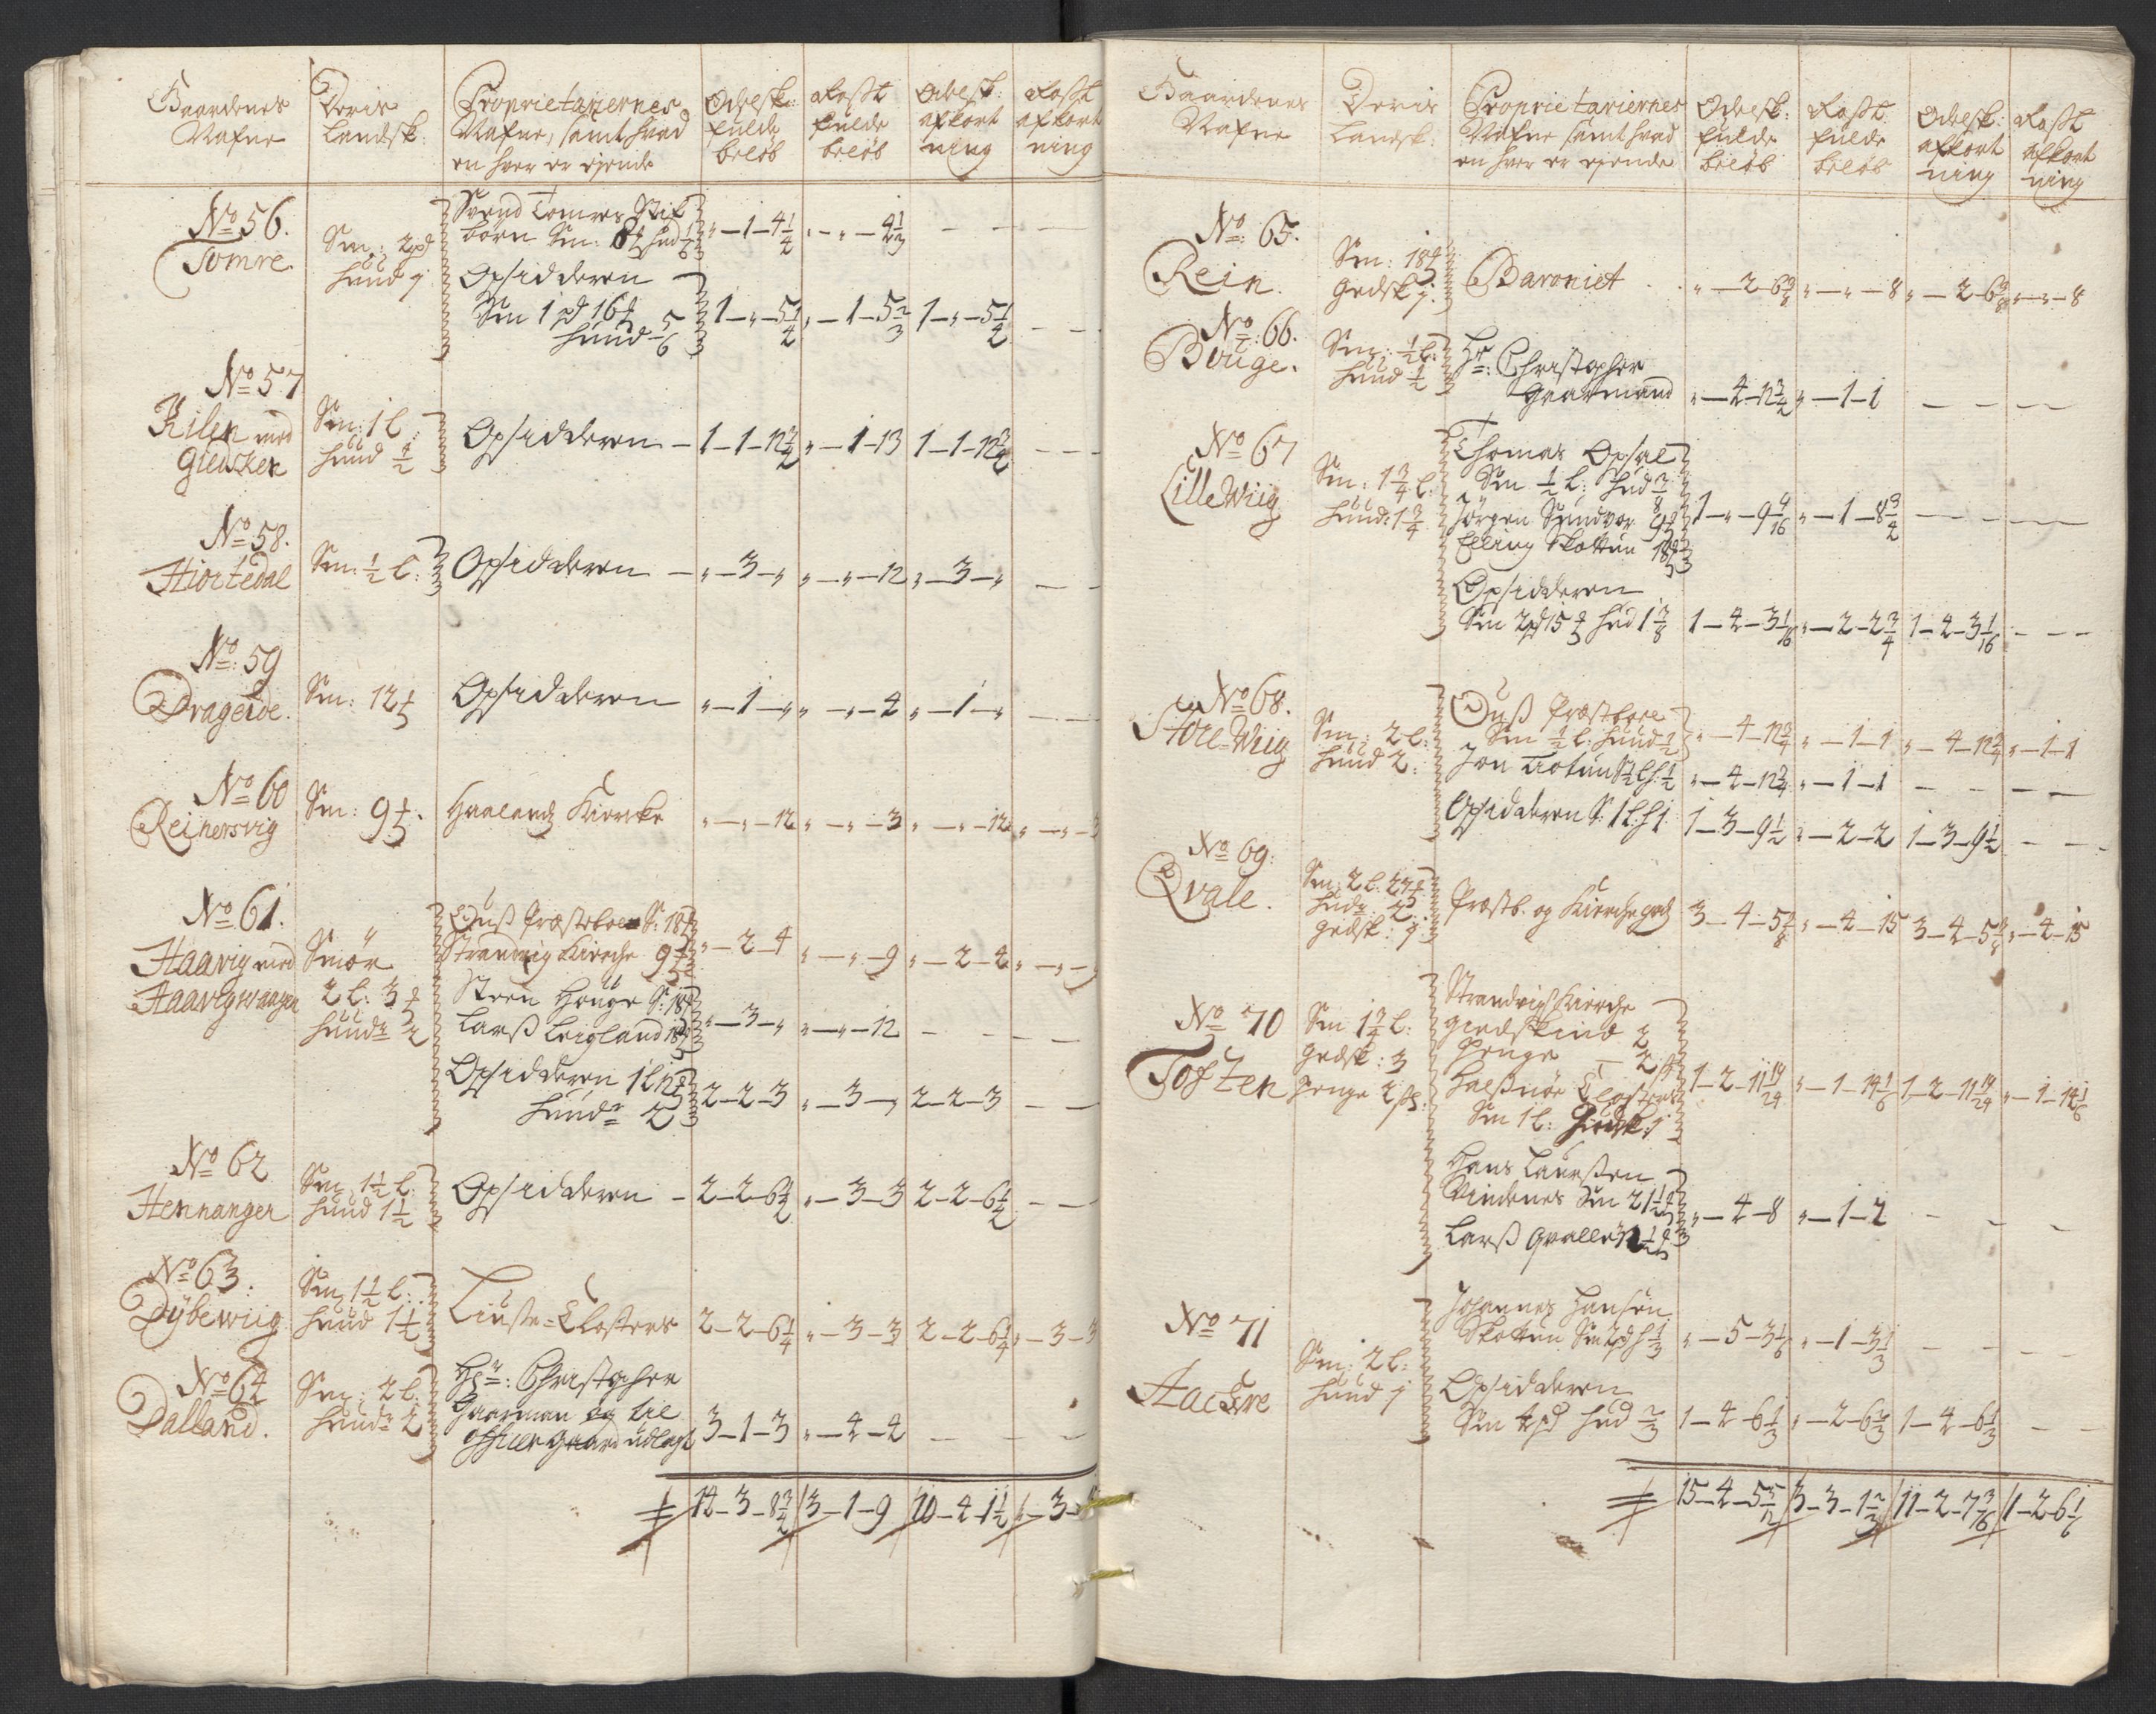 Gaardenes Nafne
Deris Landsk:
Proprietariernes Nafne, samt hvad en hver er eyende
Odelsk: fulde beløb
Rosst: fulde beløb
Odelsk: afkortning
Rosst afkortning
No 56.
Tomre
Sm: 2 pd
Huud 1
Svend Tomres Stif
børn Sm: 8 Hud 1/6
" — 1 — 4 1/4
" — " — 4 1/3
Opsidderen
Sm 1 pd 16
Huud 5/6
1 — " — 5 1/2
" — 1 — 5 2/3
1 — " — 5 1/2
No 57
Kilen med
Giersken
Sm: 1 l
Huud 1/2
Opsidderen — 1 — 1 — 12 3/4
" — 1 — 13
1 — 1 — 12 3/4
No 58.
Hiortedal
Sm: 1/2 l:
Opsidderen — " — 3 — "
" — " — 12
" — 3 — "
No: 59
Drageide.
Sm: 12
Opsidderen
" — 1 — "
" — " — 4
" — 1 — "
No 60
Reinersvig
Sm: 9
Haalands Kiercke
" — " — 12
" — " — 3
" — " — 12
" — " — 3
No 61.
Haavig med
Haavigwaagen
Smør
2 l: 3
Huude 2
Ouß Præstebol S: 18
Strandvig Kirche 9
" — 2 — 4
" — " — 9
" — 2 — 4
" — " — 9
Steen Houge S: 18
Larß Leigland 18
" — 3 — "
" — " — 12
Opsidderen 1 l 12
Huude 2
2 — 2 — 3
" — 3 — "
2 — 2 — 3
No 62
Hennanger
Sm 1 1/2 l:
Huud 1 1/2
Opsidderen — 2 — 2 — 6 1/2
" — 3 — 3
2 — 2 — 6 1/2
No 63:
Dybewiig
Sm 1 1/2 l:
Huud 1 1/2
Liuse-Closters
2 — 2 — 6 1/4
" — 3 — 3
2 — 2 — 6 1/4
" — 3 — 3
No 64
Dalland.
Sm: 2 l:
Huude 2
Hr: Christopher
Gaarman og til
officer Gaard udlagt
3 — 1 — 3
" — 4 — 4
14 — 3 — 8 3/4
3 — 1 — 9
10 — 4 — 1 1/2
" — 3 —
Gaardenes Nafne
Deris Landsk:
Proprietariernes Nafne samt hvad en hver er eyende
Odelsk: fulde beløb
Rosst fulde beløb
Odelsk: afkortning
Rosst afkortning
No: 65.
Rein.
Sm: 18
Gedsk 1.
Baroniet
" — 2 — 6 3/8
" — " — 8
" — 2 — 6 3/8
" — " — 8
No: 66.
Bouge.
Sm: 1/2 l:
Huud 1/2
Hr: Christopher
Gaarmand
" — 4 — 12 3/4
" — 1 — 1
No 67
Lille Wiig
Sm: 1 3/4 l:
Huud: 1 3/4
Thomas Opsal
Sm 1/2 l: Hud 3/8
Jørgen Sundvor 9
Elling Skotten 18
1 — " — 9 4/16
" — 1 — 8 3/4
Opsidderen
Sm 2 pd 15 Hud 1 3/8
1 — 4 — 3 1/16
" — 2 — 2 3/4
1 — 4 — 3 1/16
No 68.
Store-Wiig
Sm: 2 l:
Huud 2:
Ouß Præstbole
Sm 1/2 l: Huud 1/2
" — 4 — 12 3/4
" — 1 — 1
" — 4 — 12 3/4
" — 1 — 1
Jon Totun S 1/2 l H: 1/2
" — 4 — 12 3/4
" — 1 — 1
Opsidderen S: 1 l: H 1
1 — 3 — 9 1/2
" — 2 — 2
1 — 3 — 9 1/2
No 69:
Qvale.
Sm: 2 l: 27
Hude 2
Gedsk: 1
Præstb. og Kierche gods
3 — 4 — 5 3/8
" — 4 — 15
3 — 4 — 5 3/8
" — 4 — 15
No 70
Toften
Sm 1 3/4 l:
Gedsk: 3
Penge 2 ß
Strandvigs Kierche
giedskind 2
Penge — 2 ß
Halßnøe Closter
Sm 1 l: Giedsk: 1
1 — 2 — 11 19/24
" — 1 — 14 1/6
1 — 2 — 11 19/24
" — 1 — 14 1/6
Hans Laurßen
Vindenes Sm 21 1/2
Larß Qvalle
" — 4 — 8
" — 1 — 2
No 71
Hackre
Sm: 2 l:
Huud 1
Johannes Hansen
Skotten Sm 2 pd H 1/3
" — 5 — 3 1/6
" — 1 — 3 1/3
Opsidderen
Sm 4 pd Hud 2/3
1 — 4 — 6 1/3
" — 2 — 6 2/3
1 — 4 — 6 1/3
15 — 4 — 5 5/12
3 — 3 — 1 2/3
11 — 2 — 7 3/16
1 — 2 — 6 1/6